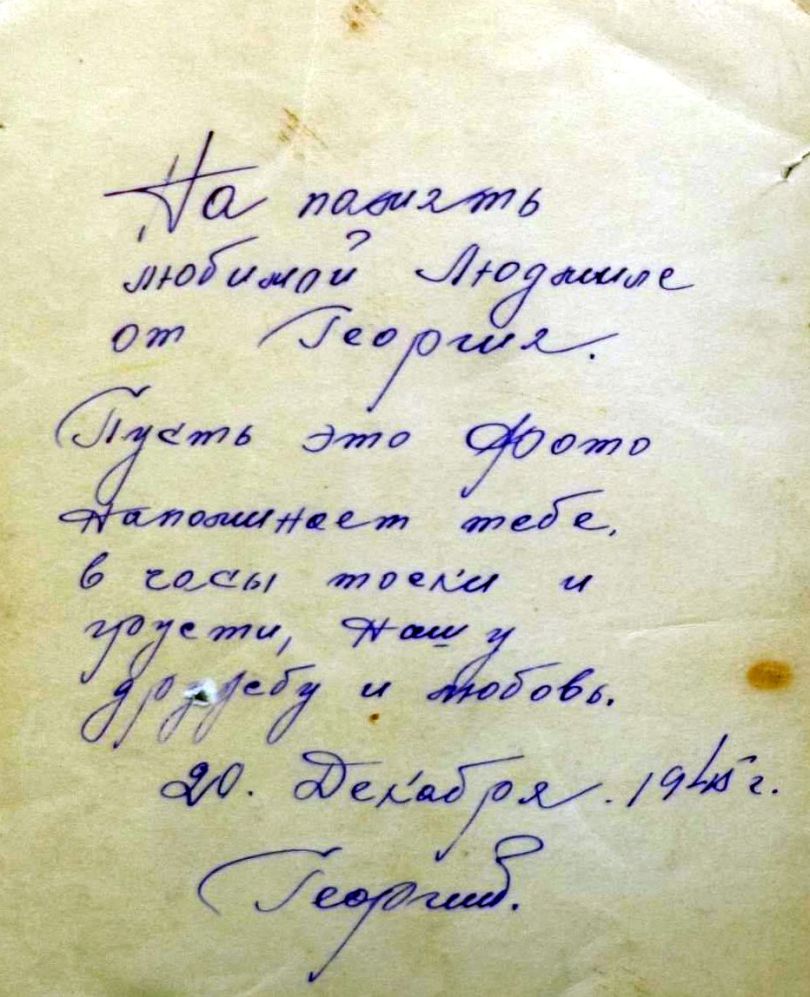 На память
любимой Людмиле
от Георгия.
Пусть это Фото
напоминает тебе,
в часы тоски и
грусти, нашу
дружбу и любовь.
20. Декабря. 1945 г.
Георгий.